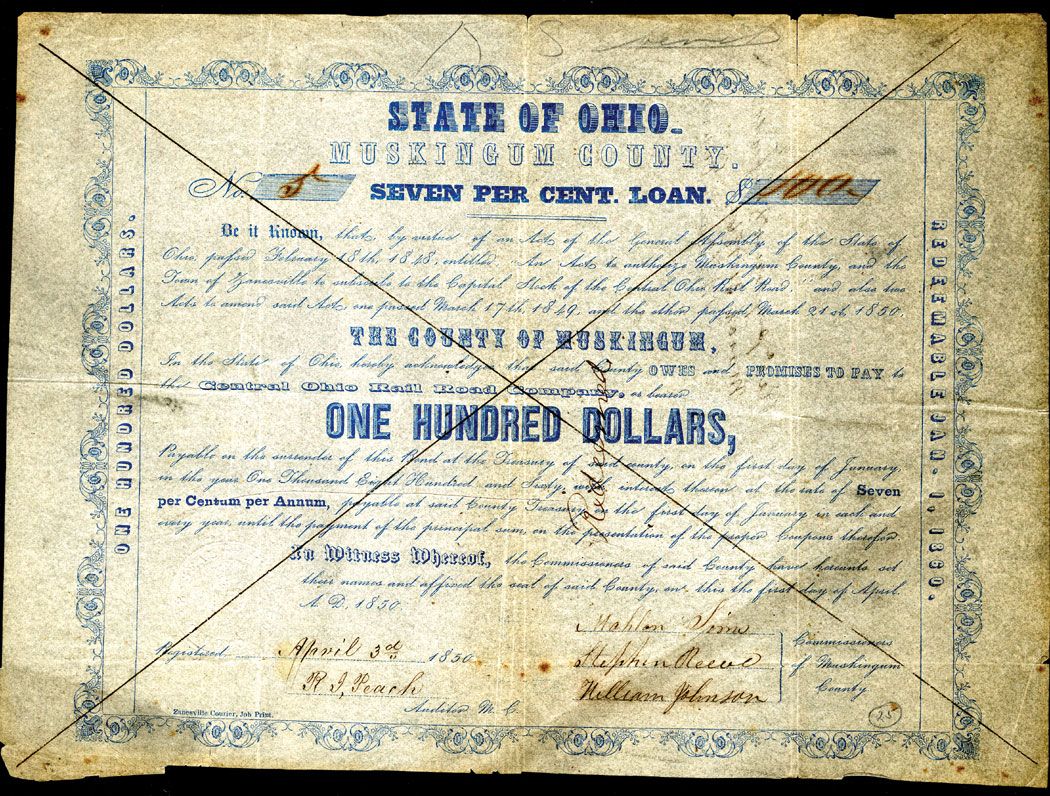 STATE OF OHIO.
MUSKINGUM COUNTY.
No. 5 SEVEN PER CENT. LOAN. $ 100
Be it Known, that by virtue of an Act of the General Assembly of the State of
Ohio, passed February 18th, 1848, entitled "An Act to authorize Muskingum County, and the
Town of Zanesville to subscribe to the Capital Stock of the Central Ohio Rail Road," and also two
Acts to amend said Act, one passed March 17th, 1849, and the other passed March 21st, 1850,
THE COUNTY OF MUSKINGUM,
In the State of Ohio, hereby acknowledges that said County OWES and PROMISES TO PAY to
the Central Ohio Rail Road Company, or bearer
ONE HUNDRED DOLLARS,
Payable on the surrender of this Bond at the Treasury of said county, on the first day of January,
in the year One Thousand Eight Hundred and Sixty, with interest thereon at the rate of Seven
per Centum per Annum, payable at said County Treasury on the first day of January in each and
every year, until the payment of the principal sum, on the presentation of the proper Coupons therefor.
In Witness Whereof, the Commissioners of said County have hereunto set
their names and affixed the seal of said County, on this the first day of April
A. D. 1850
Registered April 3d 1850
R I, Peach
Auditor M. C.
Mahlon Sims
Stephen Reeve
William Johnson
Commissioners
of Muskingum
County
Zanesville Courier, Job Print.
25
ONE HUNDRED DOLLARS.
REDEEMABLE JAN. 1, 1860.
Redeemed